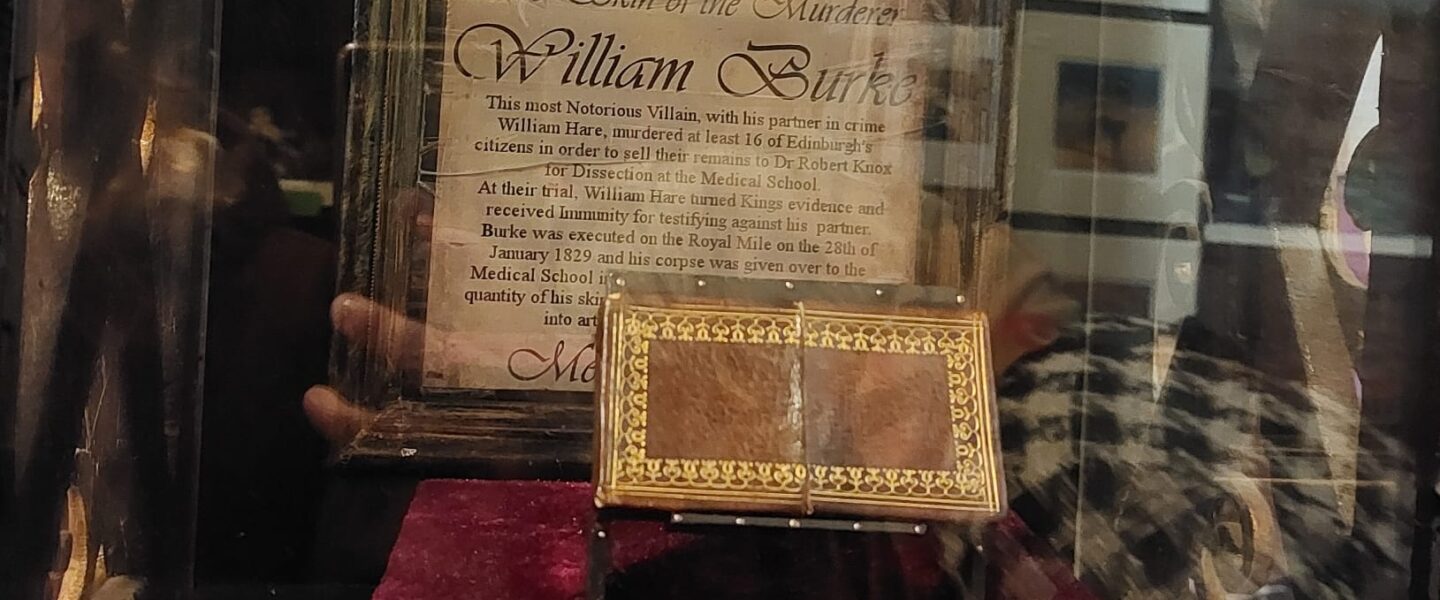 Skin of the Murderer
William Burke
This most Notorious Villain, with his partner in crime
William Hare, murdered at least 16 of Edinburgh's
citizens in order to sell their remains to Dr Robert Knox
for Dissection at the Medical School.
At their trial, William Hare turned Kings evidence and
received Immunity for testifying against his partner.
Burke was executed on the Royal Mile on the 28th of
January 1829 and his corpse was given over to the
Medical School
quantity of his
into